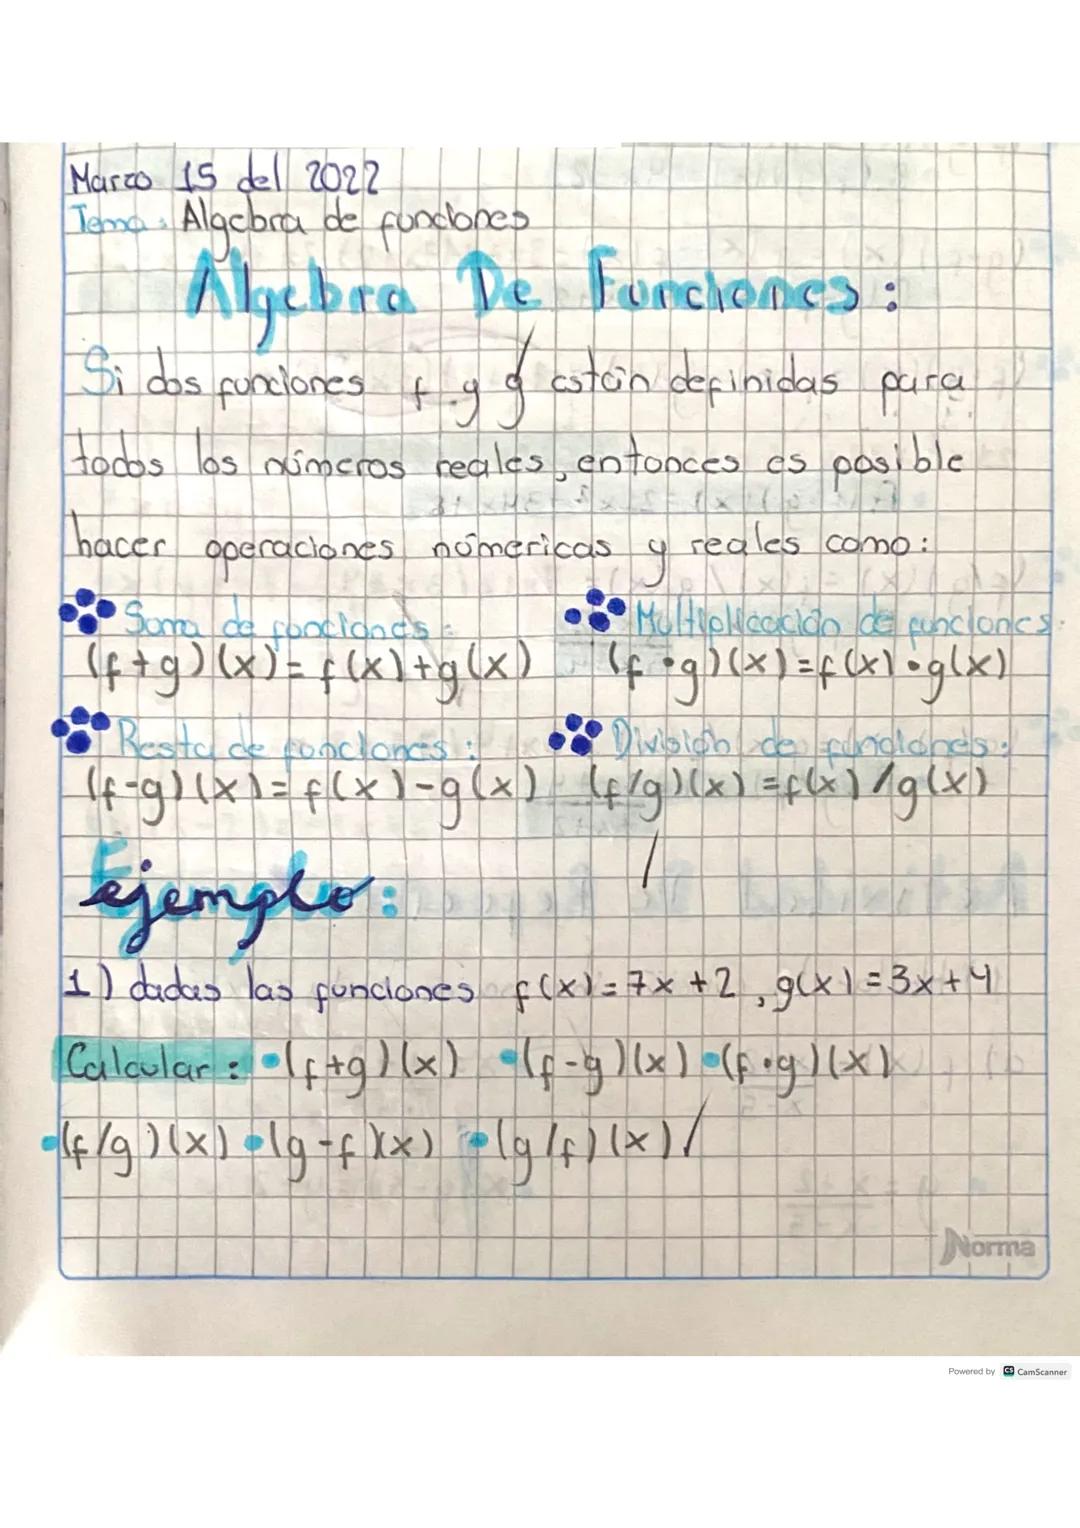 Marzo 15 del 2022
Tema: Algebra de funciones
Algebra De Funciones:
Si dos funciones f y g están definidas para
todos los números reales, entonces es posible
hacer operaciones númericas y reales como:
Suma de funciones:
(f+g)(x)=f(x)+g(x)
Multiplicación de funciones:
(f•g)(x)=f(x)•g(x)
Resta de funciones:
(f-g)(x)=f(x)-g(x)
División de funciones:
(f/g)(x)=f(x)/g(x)
ejemplo:
1) dadas las funciones f(x)=7x+2, g(x)=3x+4
Calcular: •(f+g)(x) •(f-g)(x) •(f•g)(x)
•(f/g)(x) •(g-f)(x) •(g/f)(x)/
Norma
Powered by CS CamScanner